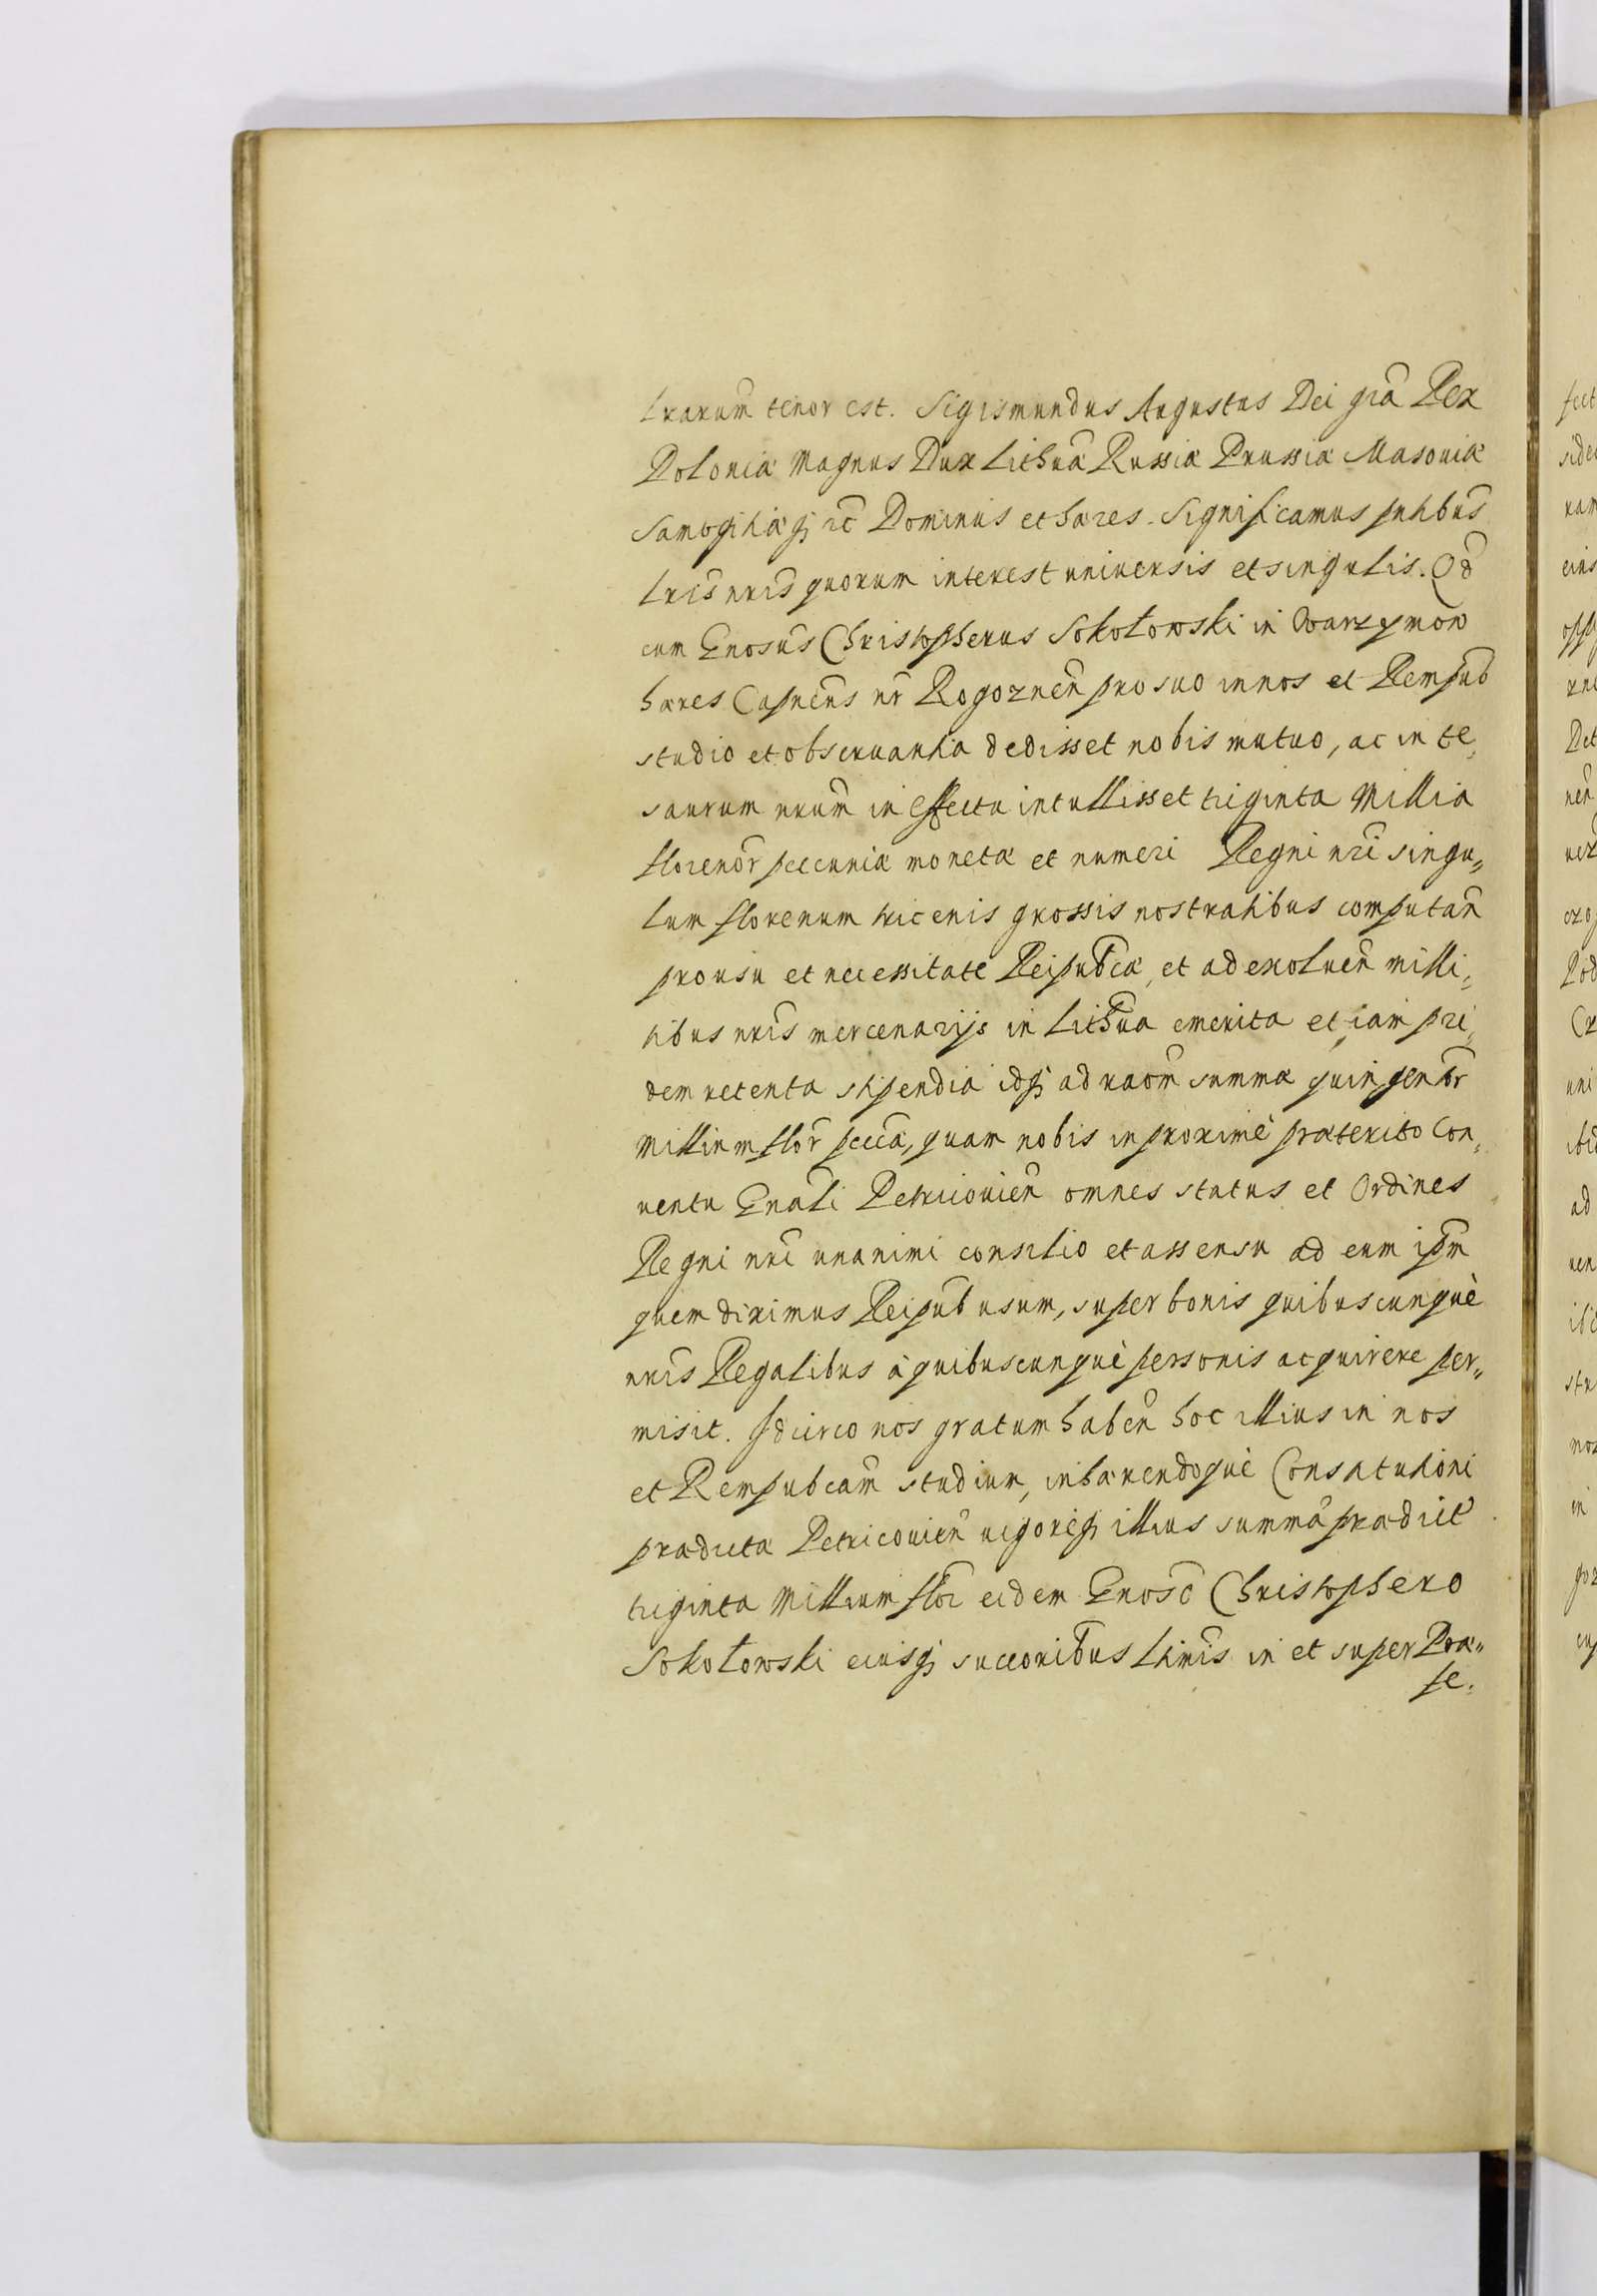 lrarum tenor est. Sigismundus Augustus Dei gra Rex
Poloniæ Magnus Dux Lithuã Russiæ Prussiæ Masouiæ
Samogitiæq; zc Dominus et hæres. Significamus pntibus
lris nris quorum interest uniuersis et singulis. Qd
cum Gnosus Christopherus Sokołowski in Warzymow
hæres Capneus nr Rogoznen pro suo in nos et Rempub
studio et obseruantia dedisset nobis mutuo, ac in te,
saurum nrum in effectu intullisset triginta Millia
florenor pecuniæ monetæ et numeri Regni nri singu„
lum florenum tricenis grossis nostratibus computan
pro usu et necessitate Reipubcæ, et ad exoluen milli,
tibus nris mercenarijs in Lithua emerita et iam pri,
dem retenta stipendia idq; ad raom summæ quingentor
Millium flor pecca, quam nobis in proximè præterito Con,
uentu Gnali Petricouien omnes status et Ordines
Regni nri unanimi consilio et assensu ad eum ipm
quem diximus Reipub usum, super bonis quibuscunquè
nris Regalibus à quibuscunquè personis acquirere per„
misit. Idcirco nos gratum haben hoc illius in nos
et Rempubcam studium, inhærendoquè Constitutioni
prædictæ Petricouien uigoreq; illius summã prædict
triginta Millium flor eidem Gnoso Christophero
Sokołowski eiusq; succoribus ltimis in et super Præ„
fe.